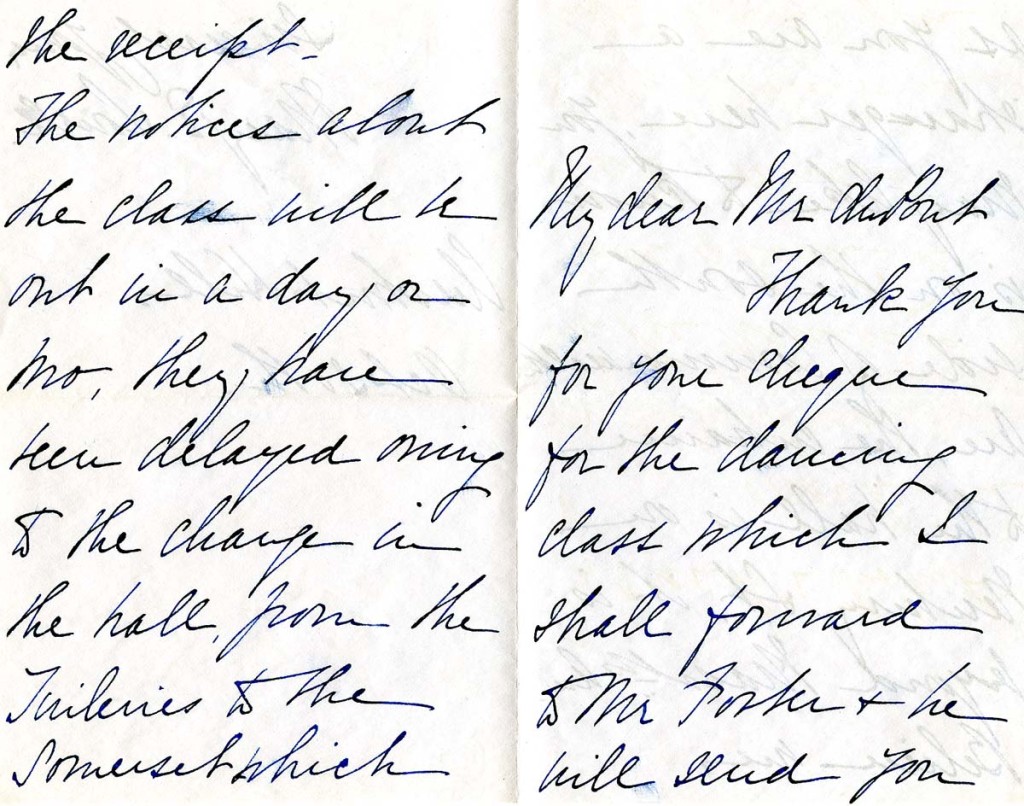 My dear Mr duPont
Thank you
for your cheque
for the dancing
class which I
shall forward
to Mr Foster + he
will send you
the receipt -
The notices about
the class will be
out in a day, or
two, they, have
been delayed owing
to the change in
the hall, from the
Tuileries to the
Somerset which